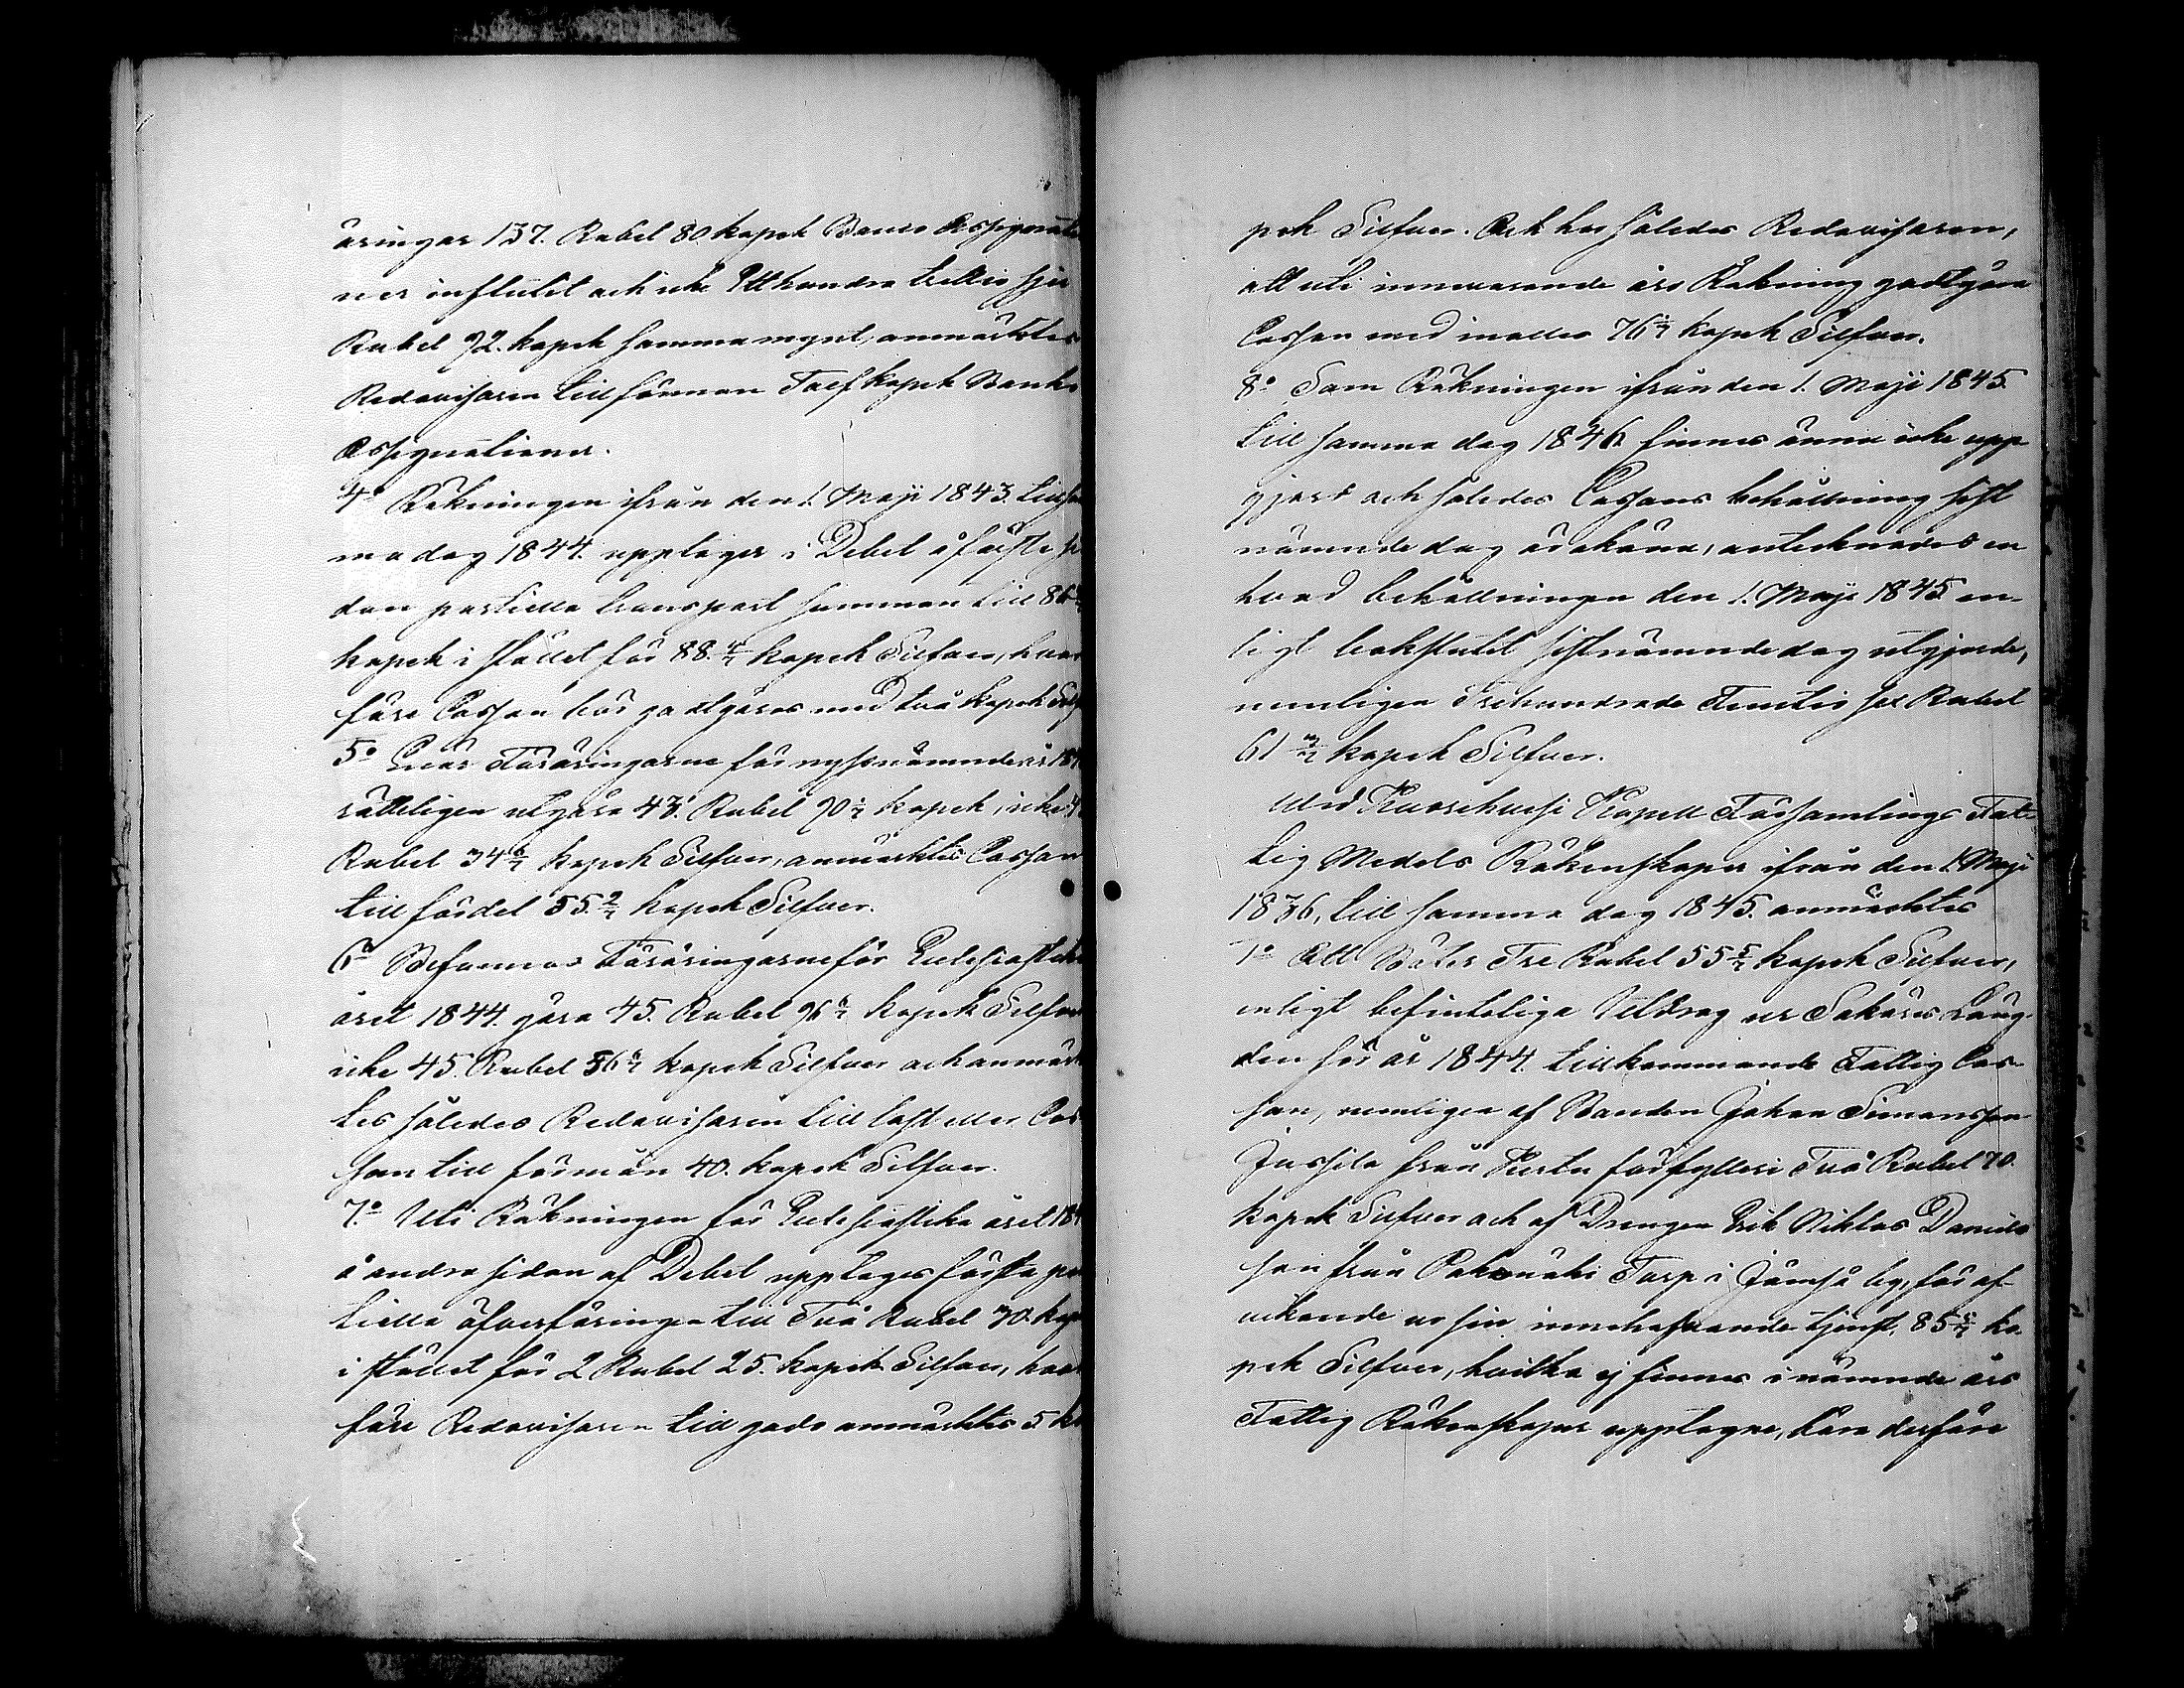 åringar 137. Rubel 80 kopek Banco Assignatio
ner influtit och icke Ett hundra trettio sju
Rubel 92. kopek samma mynt, anmärktes
Redovisaren till förmon Tolf kopek Banko
Assignationer.
4:o Räkningen ifrån den 1. Maji 1843. till sam
ma dag 1844. upptager i Debet å första si
dan partiella transport summan till 86
kopek i stället för 88. 4/7 kopek Silfver, hvar
före Cassan bör godtgöras med två kopek Silf
5:o Enär Föräringarne för nyssnämnde år 184
rätteligen utgöra 43. Rubel 90 1/7 kopek, icke 4
Rubel 34 6/7 kopek Silfver, anmärktes Cassan
till fördel 55. 2/7 kopek Silfver.
6:o Befunnos Föräringarne för Ecclesiastika
året 1844. göra 45. Rubel 96 6/7 kopek Silfver
icke 45. Rubel 56 6/7 kopek Silfver och anmärk
tes således Redovisaren till last eller Cas
san till förmån 40. kopek Silfver.
7:o Uti Räkningen för Ecclesiastika året 184
å andra sidan af Debet upptages första par
tiella öfverföringen till Två Rubel 30. kop
i stället för 2 Rubel 25. kopek Silfver, hvar
före Redovisaren till godo anmärktes 5. ko
pek Silfver. Och bör således Redovisaren,
att uti innevarande års Räkning godtgöra
Cassan med inalles 76 1/7 kopek Silfver.
8:o Som Räkningen ifrån den 1. Maji 1845.
till samma dag 1846. finnes ännu icke upp
gjord och således Cassans behållning sist
nämnde dag är okänd, antecknades en
hvad behållningen den 1. Maji 1845. en-
ligt bokslutet sistnämnde dag utgjorde,
nemligen Trehundrade Femtio sex Rubel
61 3/7 kopek Silfver.
Med Kuorehvesi Kapell Församlings Fat-
tig Medels Räkenskaper ifrån den 1. Maji
1836, till samma dag 1845. anmärktes
1:o Att Böter Tre Rubel 55 5/7 kopek Silfver,
enligt befinteliga Utdrag ur Saköres Läng-
den för år 1844. tillkommande Fattig Cas-
san, nemligen af Bonden Johan Simonsson
Jussila från Kurta för fylleri Två Rubel 70.
kopek Silfver och af Drengen Erik Niklas Daniels
son från Torp i Jämsä by, för af-
vikande ur sin innehafvande tjenst, 85 5/7 ko
pek Silfver, hvilka ej finnes i nämnde års
Fattig Räkenskaper upptagne, böra derföre